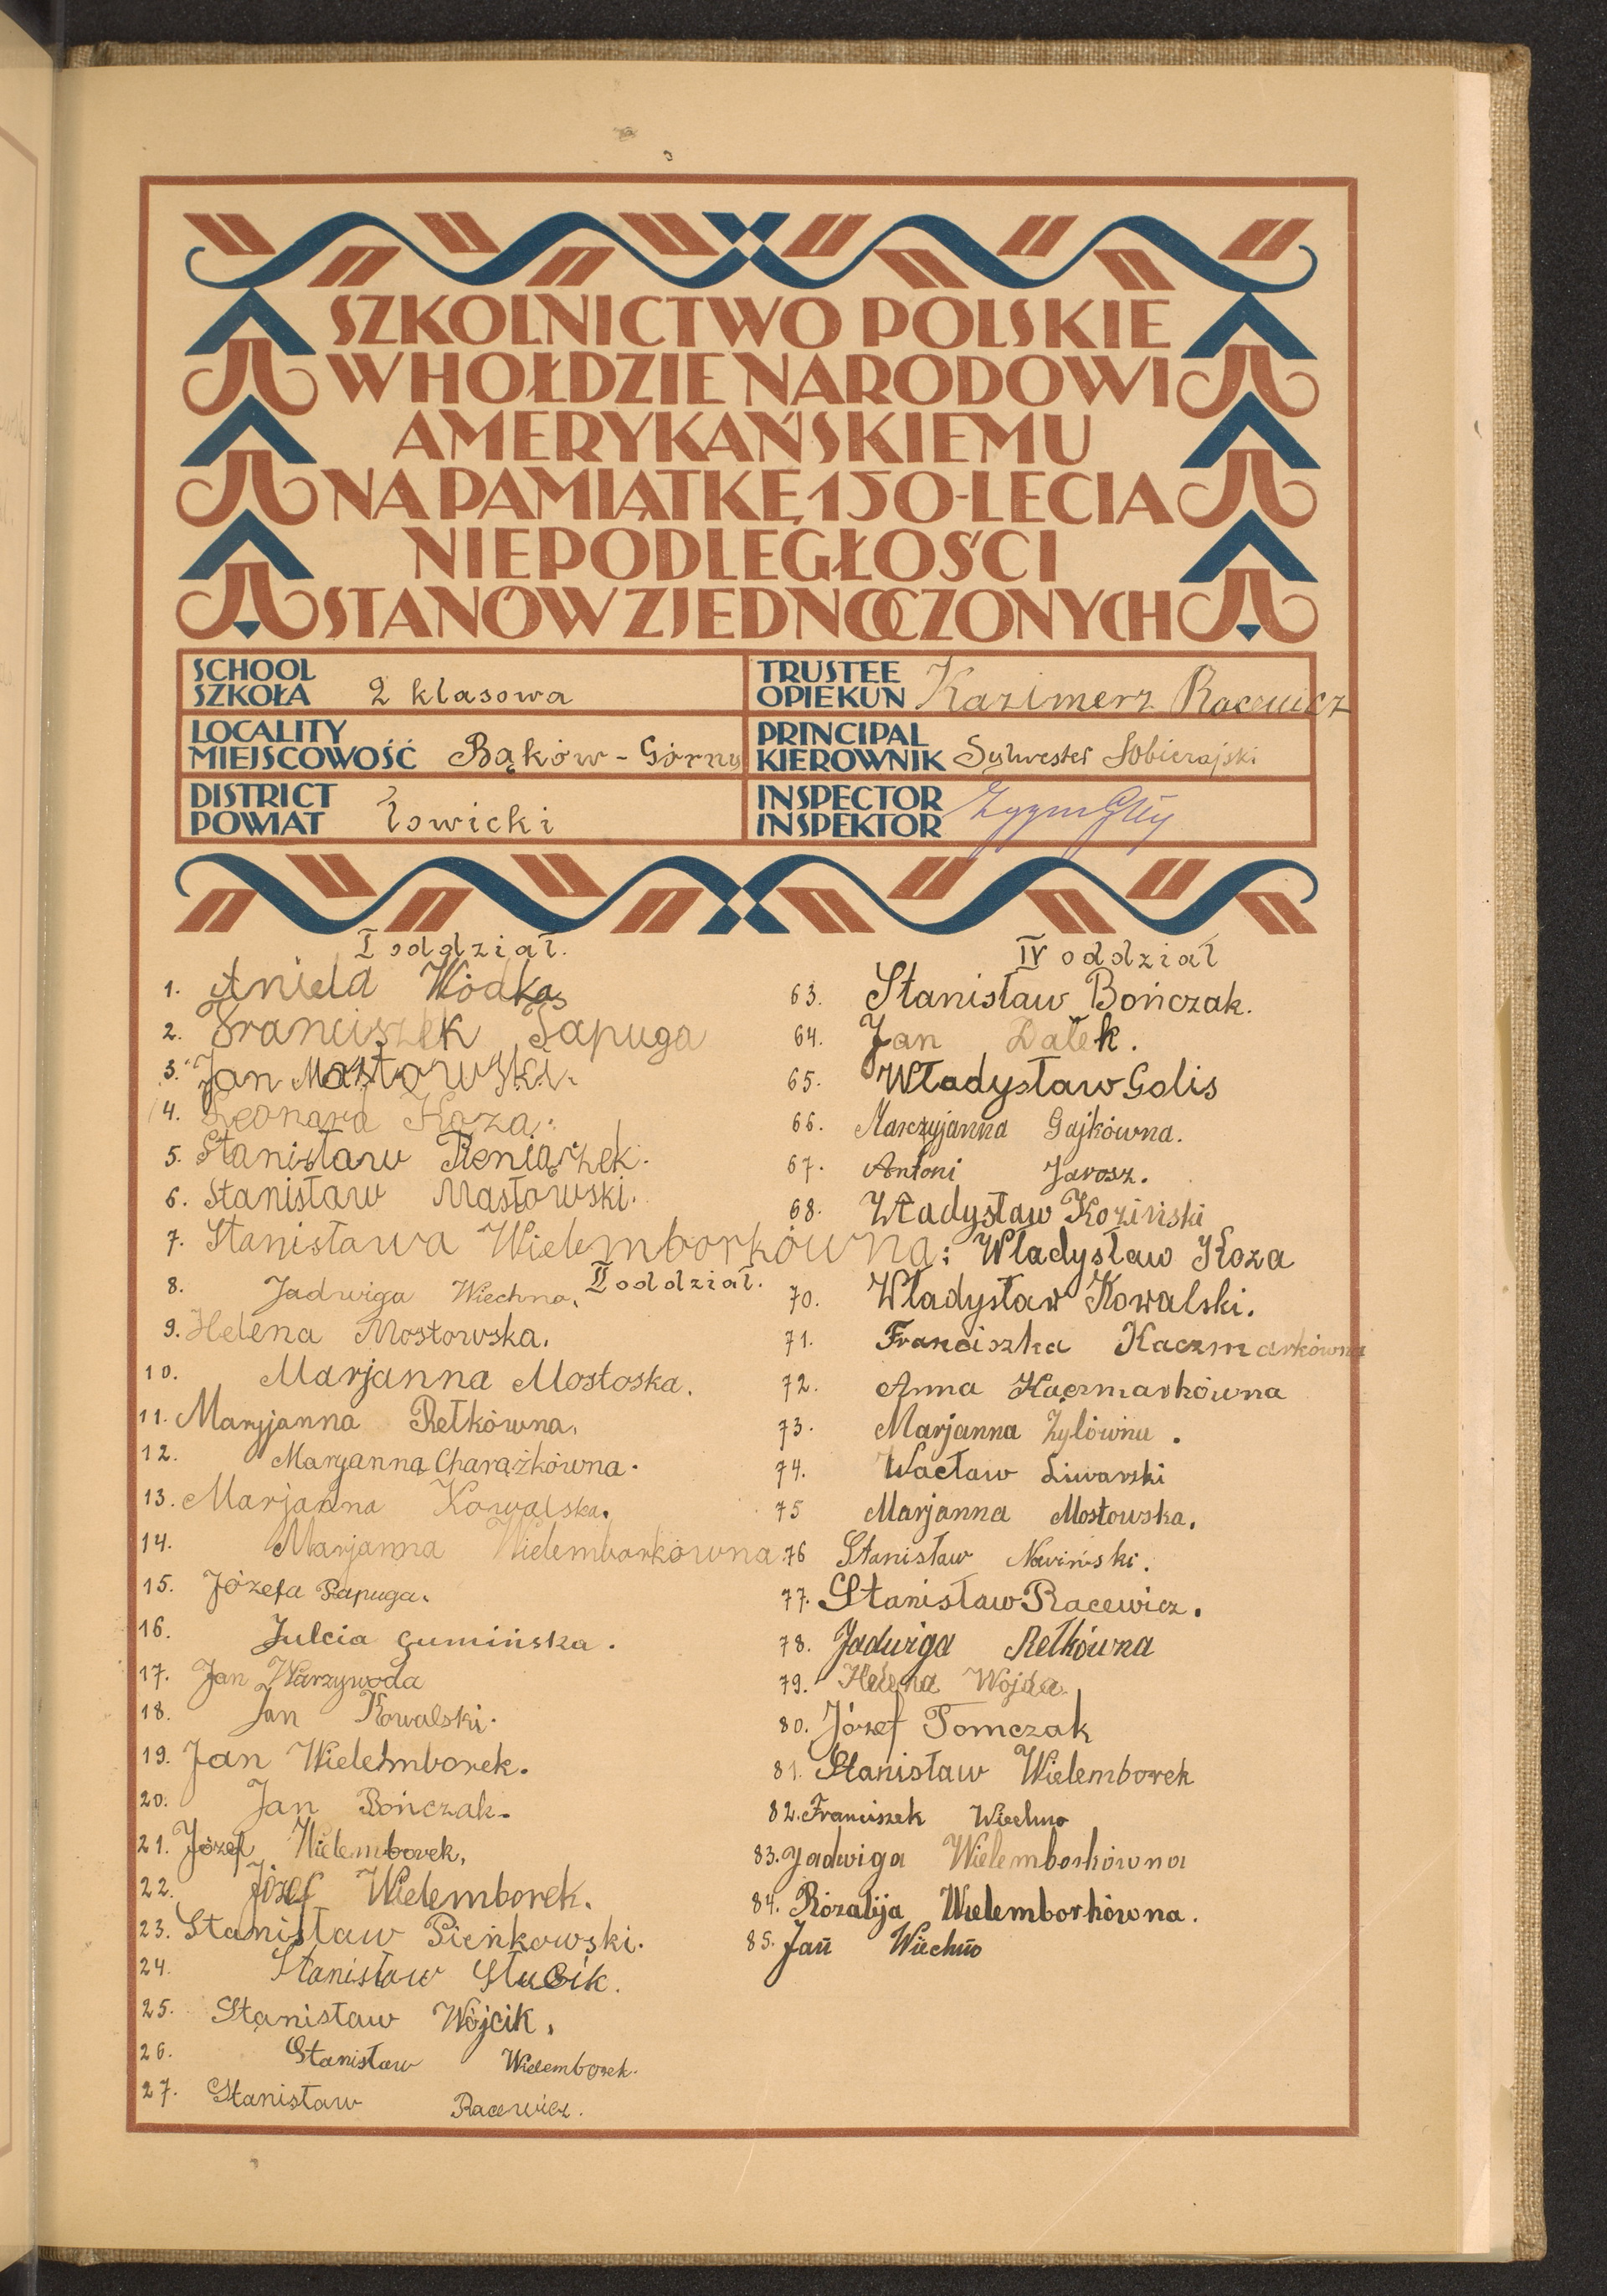 SZKOLNICTWO POLSKIE
W HOŁDZIE NARODOWI
AMERYKAŃSKIEMU
NA PAMIĄTKĘ 150-LECIA
NIEPODLEGŁOŚCI
STANÓW ZJEDNOCZONYCH
SCHOOL
SZKOŁA 2 klasowa
TRUSTEE
OPIEKUN Kazimerz Racewicz
LOCALITY
MIEJSCOWOŚĆ Bąków - Górny
PRINCIPAL
KIEROWNIK Sylwester Sobierajski
DISTRICT
POWIAT łowicki
INSPECTOR
INSPEKTOR
I oddział.
1. Aniela Wódka
2. Franciszek Papuga
3. Jan Mostowski.
4. Leonard Koza.
5. Stanisław Pieniążek.
6. Stanisław Masłowski.
7. Stanisława Wielemborkówna:
II oddział.
8. Jadwiga Wiechno.
9. Helena Mostowska.
10. Marjanna Mostoska.
11. Maryjanna Rełkówna.
12. Maryanna Charążkówna.
13. Marjanna Kowalska.
14. Marjanna Wielemborkówna
15. Józefa Papuga.
16. Julcia gumińska.
17. Jan Warzywoda
18. Jan Kowalski.
19. Jan Wielemborek.
20. Jan Bończak.
21. Józef Wielemborek.
22. Józef Wielemborek.
23. Stanisław Pieńkowski.
24. Stanisław Słubik.
25. Stanisław Wójcik.
26. Stanisław Wielemborek.
27. Stanisław Racewicz.
IV oddział
63. Stanisław Bończak.
64. Jan Dałek.
65. Władysław Golis
66. Marczyjanna Gajkówna.
67. Antoni Jarosz.
68. Władysław Koziński
Władysław Koza
70. Władysław Kowalski.
71. Franciszka Kaczmarkówna
72. Anna Kaczmarkówna
73. Marjanna Żylówna.
74. Wacław Liwarski
75 Marjanna Mostowska.
76 Stanisław Nowiński.
77. Stanisław Racewicz.
78. Jadwiga Rełkówna
79. Helena Wojda.
80. Józef Tomczak
81. Stanisław Wielemborek
82. Franciszek Wiechno
83. Jadwiga Wielemborkówna
84. Rózalija Wielemborkówna.
85. Jan Wiechno